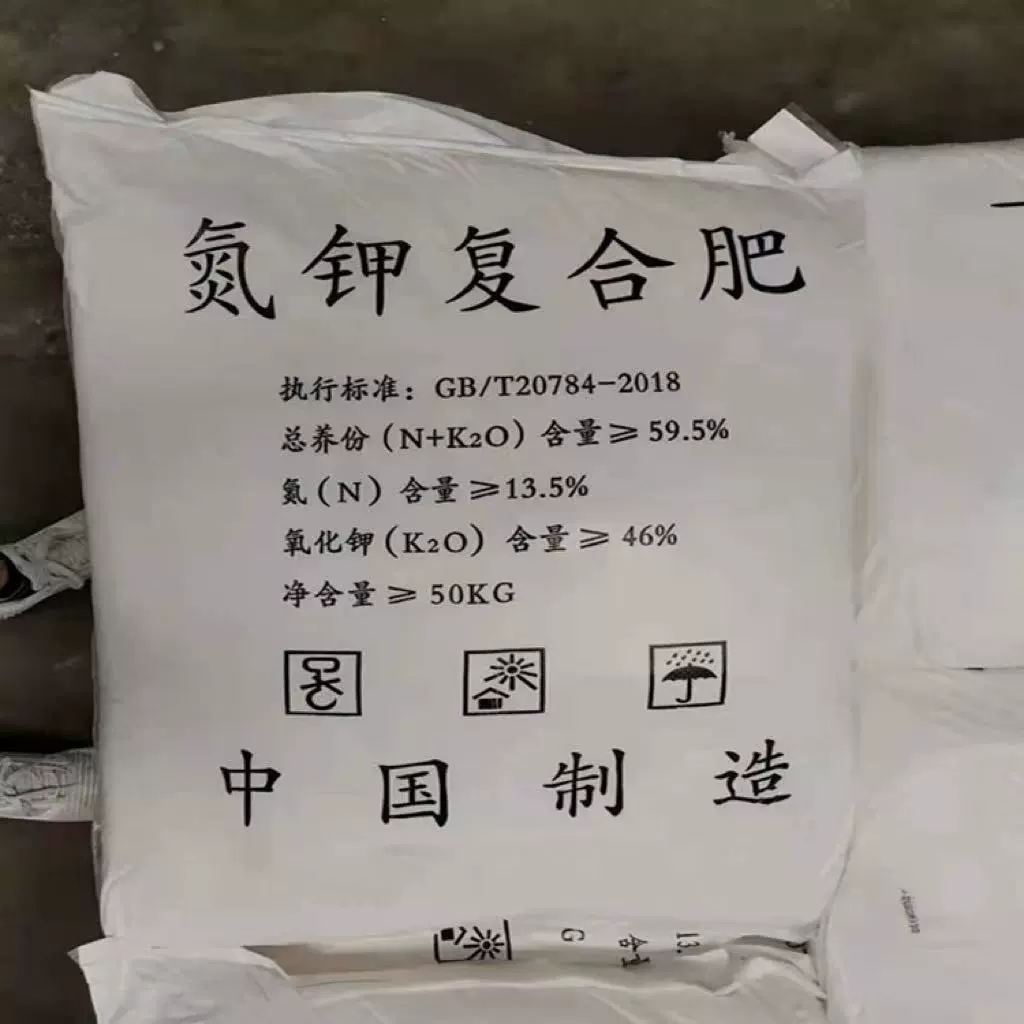 氮钾复合肥
执行标准：GB/T20784-2018
总养份（N+K2O）含量≥59.5%
氮（N）含量≥13.5%
氧化钾（K2O）含量≥46%
净含量≥50KG
中国制造
G
含量
13.